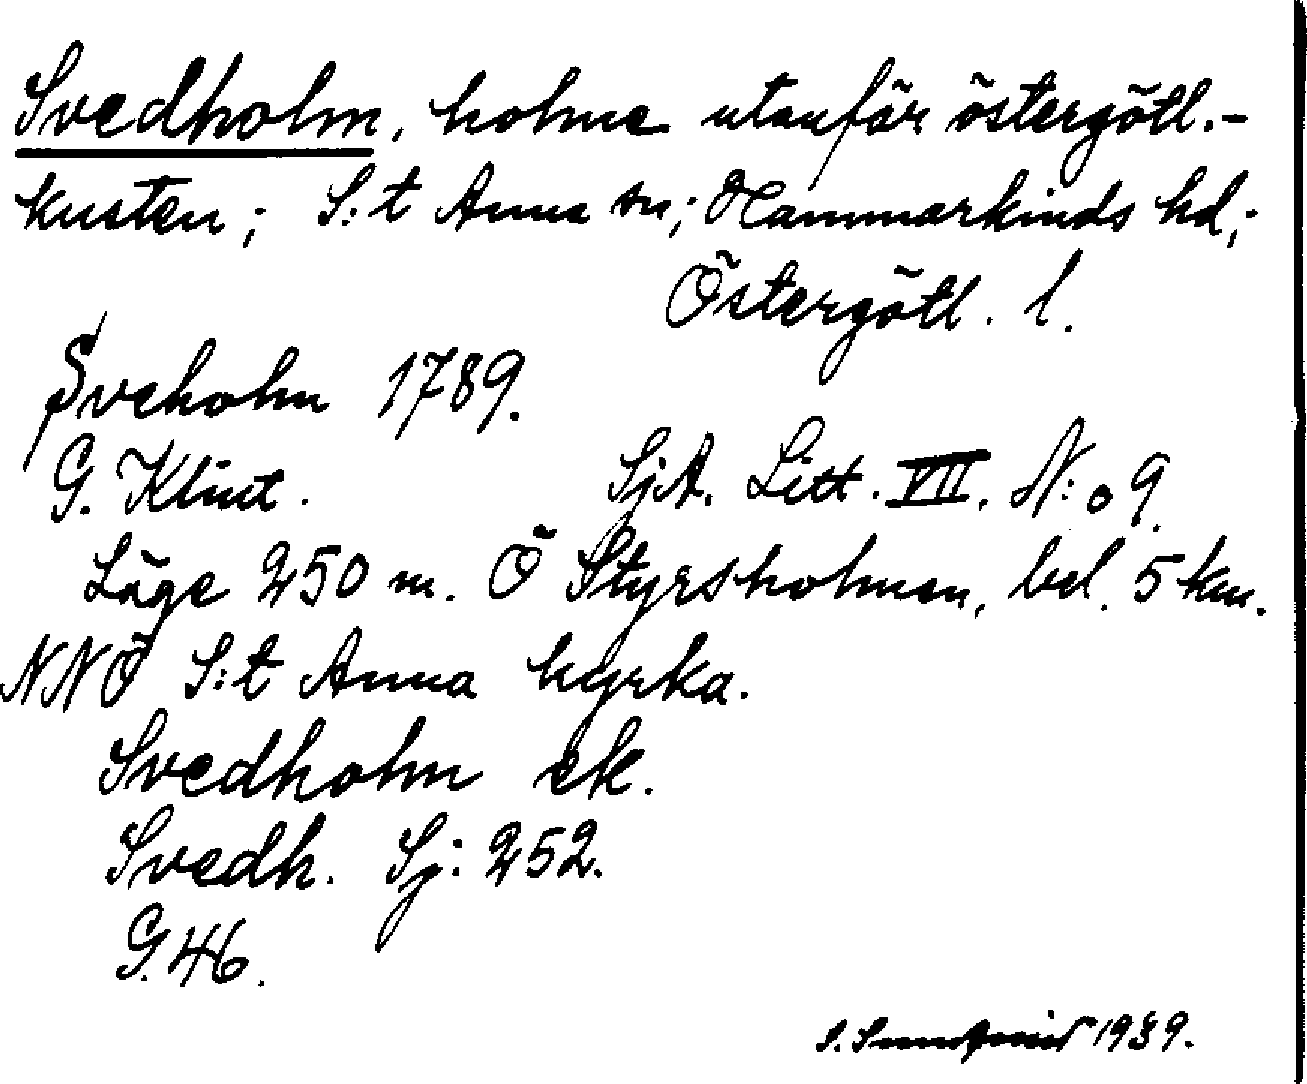 Svedholm, holme utanför östergötl.-
kusten; S:t Anna sn; Hammarkinds hd;
Östergötl. l.
Sveholm 1789.
G. Klint. SjA. Litt. VII. N:o 9.
Läge 250 m. Ö Styrsholmen, bel. 5 km.
NNÖ S:t Anna kyrka.
Svedholm ek.
Svedh. Sj: 252.
G. 46.
S. 1939.